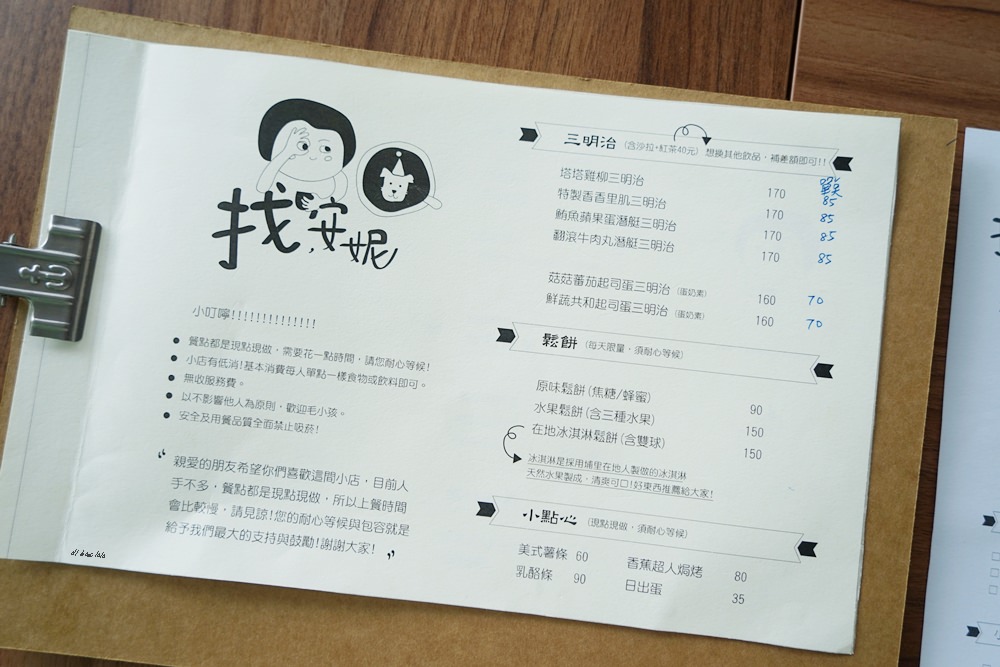 找安妮
小叮嚀!!!!!!!!!!!!!!
● 餐點都是現點現做，需要花一點時間，請您耐心等候!
● 小店有低消!基本消費每人單點一樣食物或飲料即可。
● 無收服務費。
● 以不影響他人為原則，歡迎毛小孩。
● 安全及用餐品質全面禁止吸菸!
“ 親愛的朋友希望你們喜歡這間小店，目前人
手不多，餐點都是現點現做，所以上餐時間
會比較慢，請見諒!您的耐心等候與包容就是
給予我們最大的支持與鼓勵!謝謝大家! ”
三明治 (含沙拉+紅茶40元) 想換其他飲品，補差額即可!!
塔塔雞柳三明治 170
特製香香里肌三明治 170 85
鮪魚蘋果蛋潛艇三明治 170 85
翻滾牛肉丸潛艇三明治 170 85
85
菇菇蕃茄起司蛋三明治 (蛋奶素) 160 70
鮮蔬共和起司蛋三明治 (蛋奶素) 160 70
鬆餅 (每天限量，須耐心等候)
原味鬆餅(焦糖/蜂蜜) 90
水果鬆餅(含三種水果) 150
在地冰淇淋鬆餅(含雙球) 150
冰淇淋是採用埔里在地人製做的冰淇淋
天然水果製成，清爽可口!好東西推薦給大家!
小點心 (現點現做，須耐心等候)
美式薯條 60 香蕉超人焗烤 80
乳酪條 90 日出蛋 35